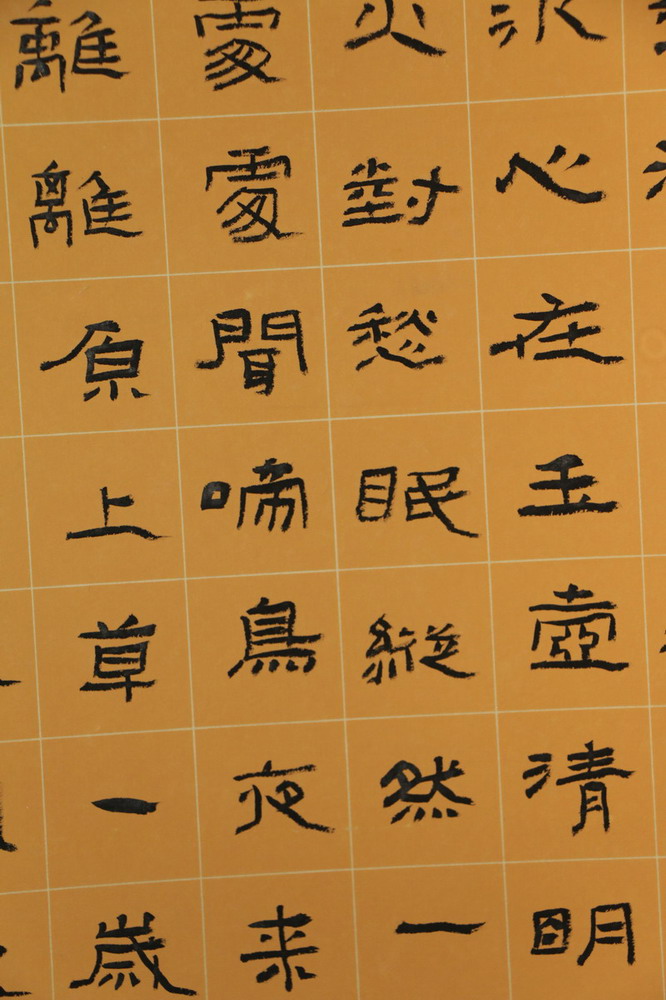 冰心在玉壺清明
火對愁眠縱然一
處處聞啼鳥夜来
離離原上草一歲